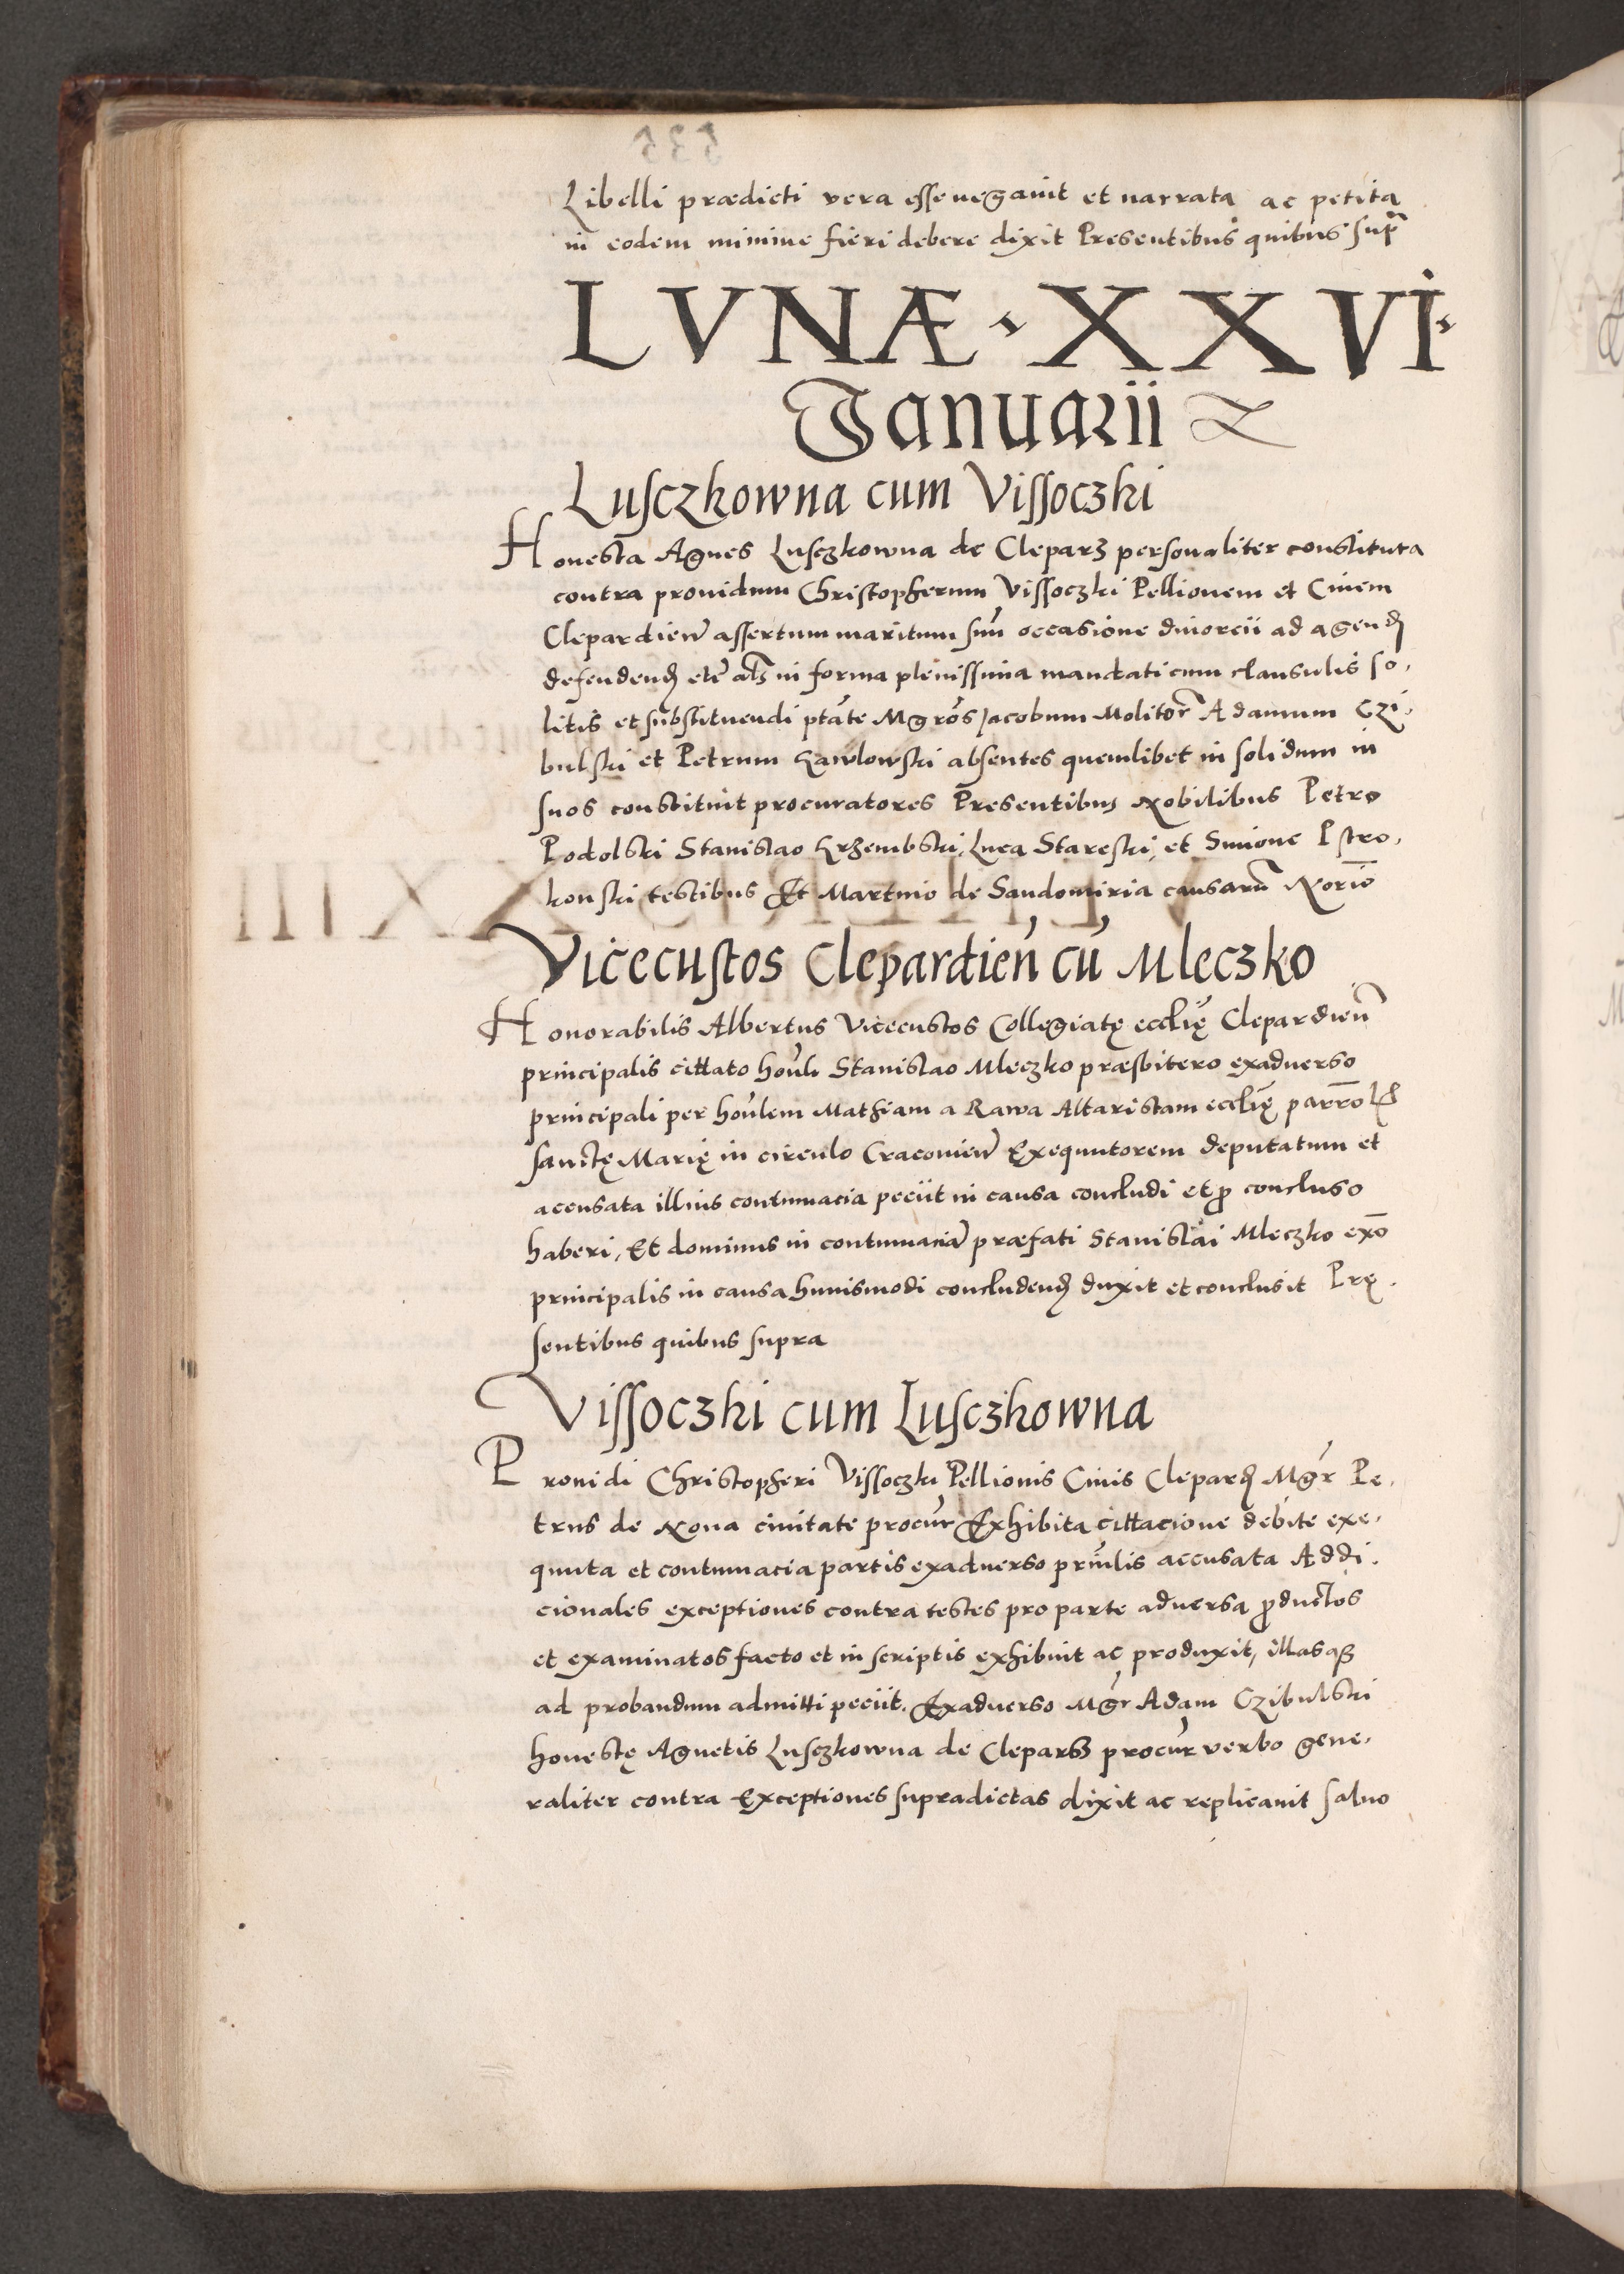 Libelli prædicti vera esse negauit et narrata ac petita
in eodem minime fieri debere dixit Presentibus quibus sup̄
LVNÆ · XXVI ·
Ianuarii
Lusczkowna cum Vissoczki
Honesta Agnes Lusczkowna de Cleparz personaliter constituta
contra prouidum Christopherum Vissoczki Pellionem et Ciuem
Clepardień assertum maritum suū occasione diuorcii ad agend
defendend etc̃ als in forma plenissima mandati cum clausulis so,
litis et substituendi ptāte Mgrōs Jacobum Molitor̃ Adamum Czi,
bulski et Petrum Kawlowski absentes quemlibet in solidum in
suos constituit procuratores Presentibus Nobilibus Petro
Podolski Stanislao Krzembski, Luca Stareski, et Simone Pstro,
konski testibus Et Martino de Sandomiria causarū Norio
Vicecustos Clepardień cū Mleczko
Honorabilis Albertus Vicecustos Collegiatę ecclię Clepardień
principalis cittato honli Stanislao Mleczko præsbitero exaduerso
principali per honlem Mathiam a Rawa Altaristam ecclię parrol
sanctę Marię in circulo Cracouień Exequutorem deputatum et
acusata illius contumacia peciit in causa concludi et ꝓ concluso
haberi, Et dominus in contumaciã præfati Stanislai Mleczko exõ
principalis in causa huiusmodi concludend duxit et conclusit Prę,
sentibus quibus supra
Vissoczki cum Lusczkowna
Prouidi Christopheri Vissoczki Pellionis Ciuis Clepard Mgr Pe,
trus de Noua ciuitate procur Exhibita cittacione debite exe,
quuta et contumacia partis exaduerso prinlis accusata Addi,
cionales exceptiones contra testes pro parte aduersa ꝓductos
et examinatos facto et in scriptis exhibuit ac produxit, illasqꝫ
ad probandum admitti peciit. Exaduerso Mgr Adam Czibulski
honestę Agnetis Lusczkowna de Cleparz procur verbo gene,
raliter contra Exceptiones supradictas dixit ac replicauit saluo